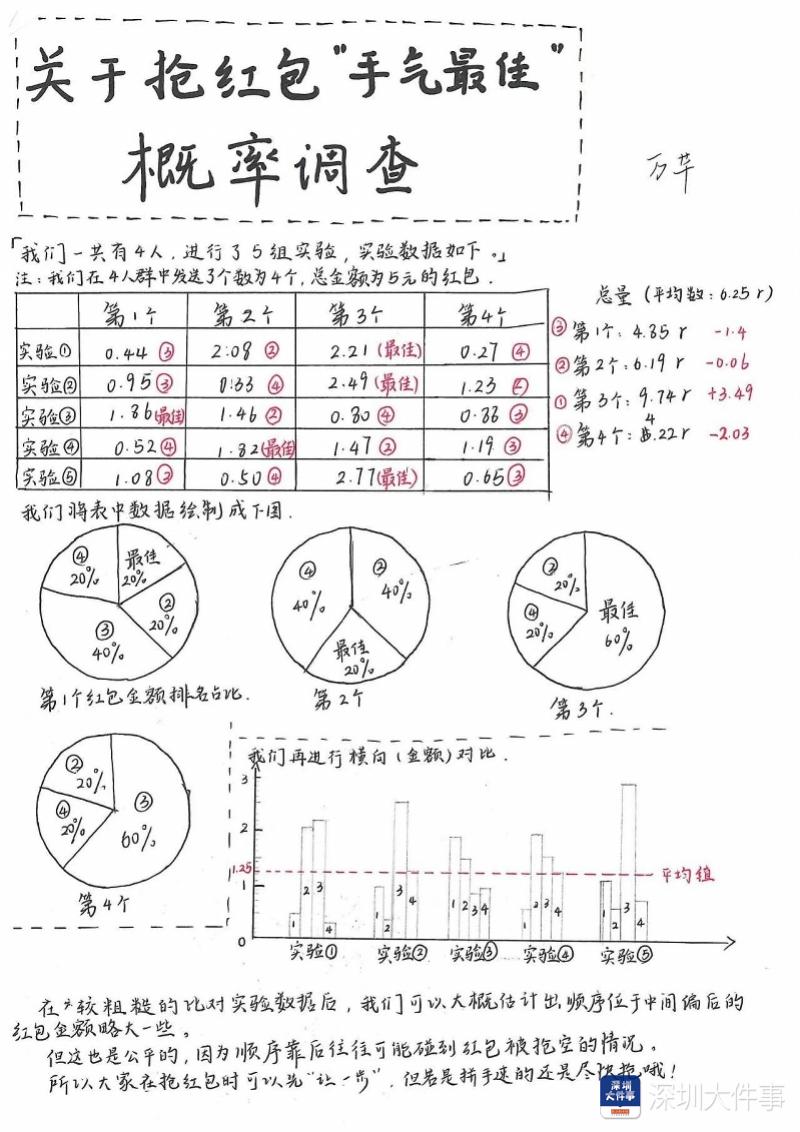 关于抢红包"手气最佳"
概率调查
万芊
「我们一共有4人，进行了5组实验，实验数据如下。」
注：我们在4人群中发送了个数为4个，总金额为5元的红包．
第1个 第2个 第3个 第4个
实验① 0.44③ 2.08② 2.21(最佳) 0.27④
实验② 0.95③ 0.33④ 2.49(最佳) 1.23②
实验③ 1.86(最佳) 1.46② 0.80④ 0.88③
实验④ 0.52④ 1.82(最佳) 1.47② 1.19③
实验⑤ 1.08② 0.50④ 2.77(最佳) 0.65③
总量（平均数：6.25 r）
③ 第1个：4.85 r -1.4
② 第2个：6.19 r -0.06
① 第3个：9.74 r +3.49
④ 第4个：4.22 r -2.03
我们将表中数据绘制成下图．
④ 20%
最佳 20%
② 20%
③ 40%
第1个红包金额排名占比．
④ 40%
② 40%
最佳 20%
第2个
② 20%
④ 20%
最佳 60%
第3个．
② 20%
④ 20%
③ 60%
第4个
我们再进行横向(金额)对比．
3
2
1.25
1
0
平均值
1 2 3 4
1 2 3 4
1 2 3 4
1 2 3 4
1 2 3 4
实验① 实验② 实验③ 实验④ 实验⑤
在较粗糙的比对实验数据后，我们可以大概估计出顺序位于中间偏后的
红包金额略大一些。
但这也是公平的，因为顺序靠后往往可能碰到红包被抢空的情况。
所以大家在抢红包时可以先"让一步"，但若是拼手速的还是尽快抢哦！
深圳
大件事
深圳大件事